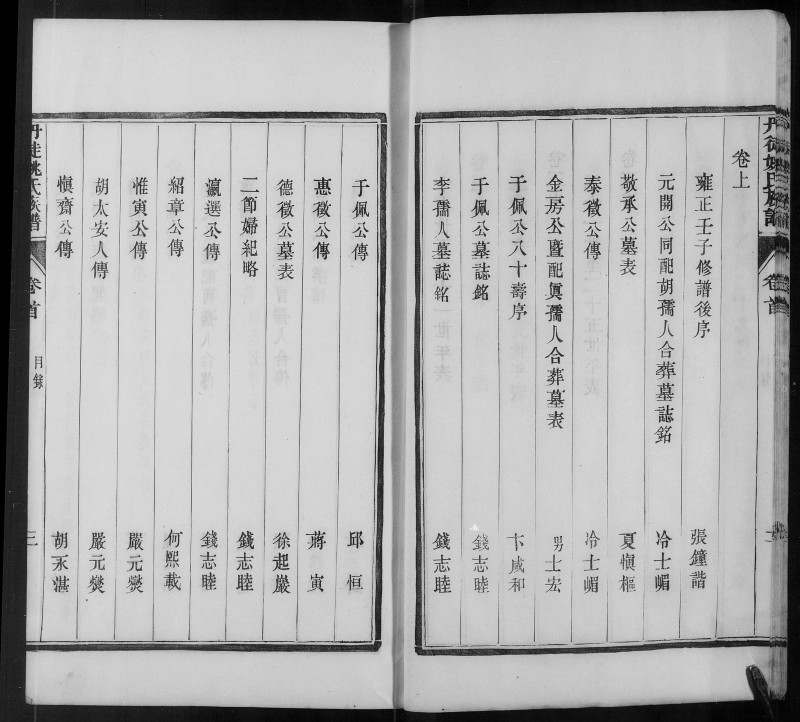 丹徒姚氏族譜
卷首
卷上
雍正壬子修譜後序 張鐘諧
元開公同配胡孺人合葬墓誌銘 冷士嵋
敬承公墓表 夏慎樞
泰徵公傳 冷士嵋
金房公暨配奠孺人合葬墓表 男士宏
于佩公八十壽序 卞咸和
于佩公墓誌銘 錢志睦
李孺人墓誌銘 錢志睦
于佩公傳 邱恒
惠徵公傳 蔣寅
德徵公墓表 徐起巖
二節婦紀略 錢志睦
瀛選公傳 錢志睦
紹章公傳 何熙載
惟寅公傳 嚴元燮
胡太安人傳 嚴元燮
慎齋公傳 胡永湛
丹徒姚氏族譜
卷首
目錄
三